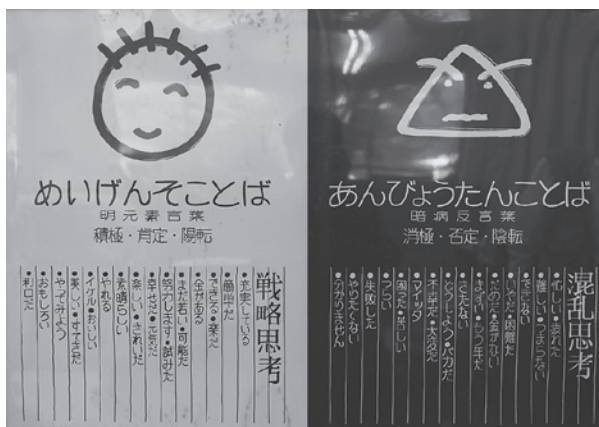 めいげんそことば
明元素言葉
積極・肯定・陽転
戦略思考
●充実している
●簡単だ
●できる●楽だ
●お金がある
●まだ若い●可能だ
●努力します●試みた
●幸せだ●元気だ
●楽しい●きれいだ
●素晴らしい
●やれる
●イケル●おいしい
●美しい●すてきだ
●やってみよう
●おもしろい
●利口だ
あんびょうたんことば
暗病反言葉
消極・否定・陰転
混乱思考
●忙しい●疲れた
●難しい●つまらない
●できない
●いやだ●困難だ
●だめだ●金がない
●まずい●もう年だ
●きたない
●どうしよう●バカだ
●不幸だ●大変だ
●マイッタ
●困った●苦しい
●つらい
●失敗した
●やりたくない
●分かりません